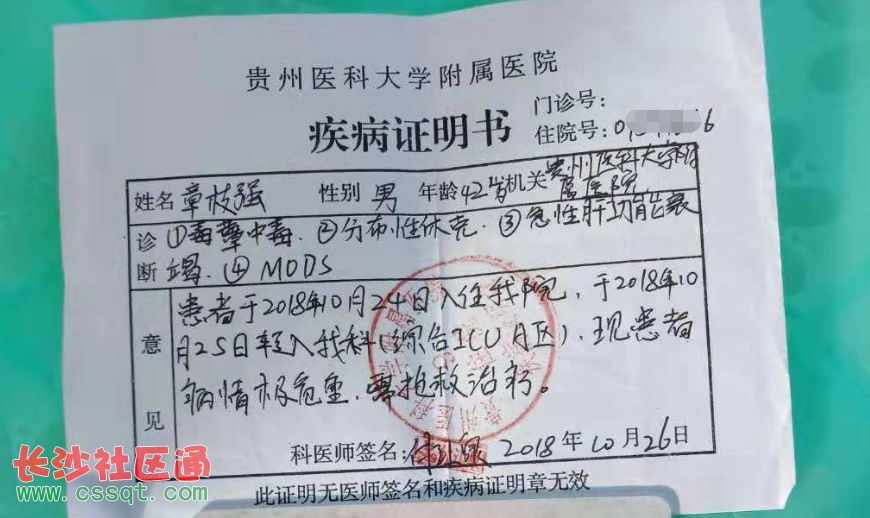 贵州医科大学附属医院
疾病证明书
门诊号:
住院号:0 6
姓名 章枝强 性别 男 年龄 42岁 机关 贵州医科大学附属医院
诊断 ①毒蕈中毒.②分布性休克.③急性肝功能衰
竭.④MODS
意见 患者于2018年10月24日入住我院,于2018年10
月25日转入我科(综合ICU A区).现患者
病情极危重,需抢救治疗。
科医师签名: 2018年10月26日
此证明无医师签名和疾病证明章无效
长沙社区通
www.cssqt.com